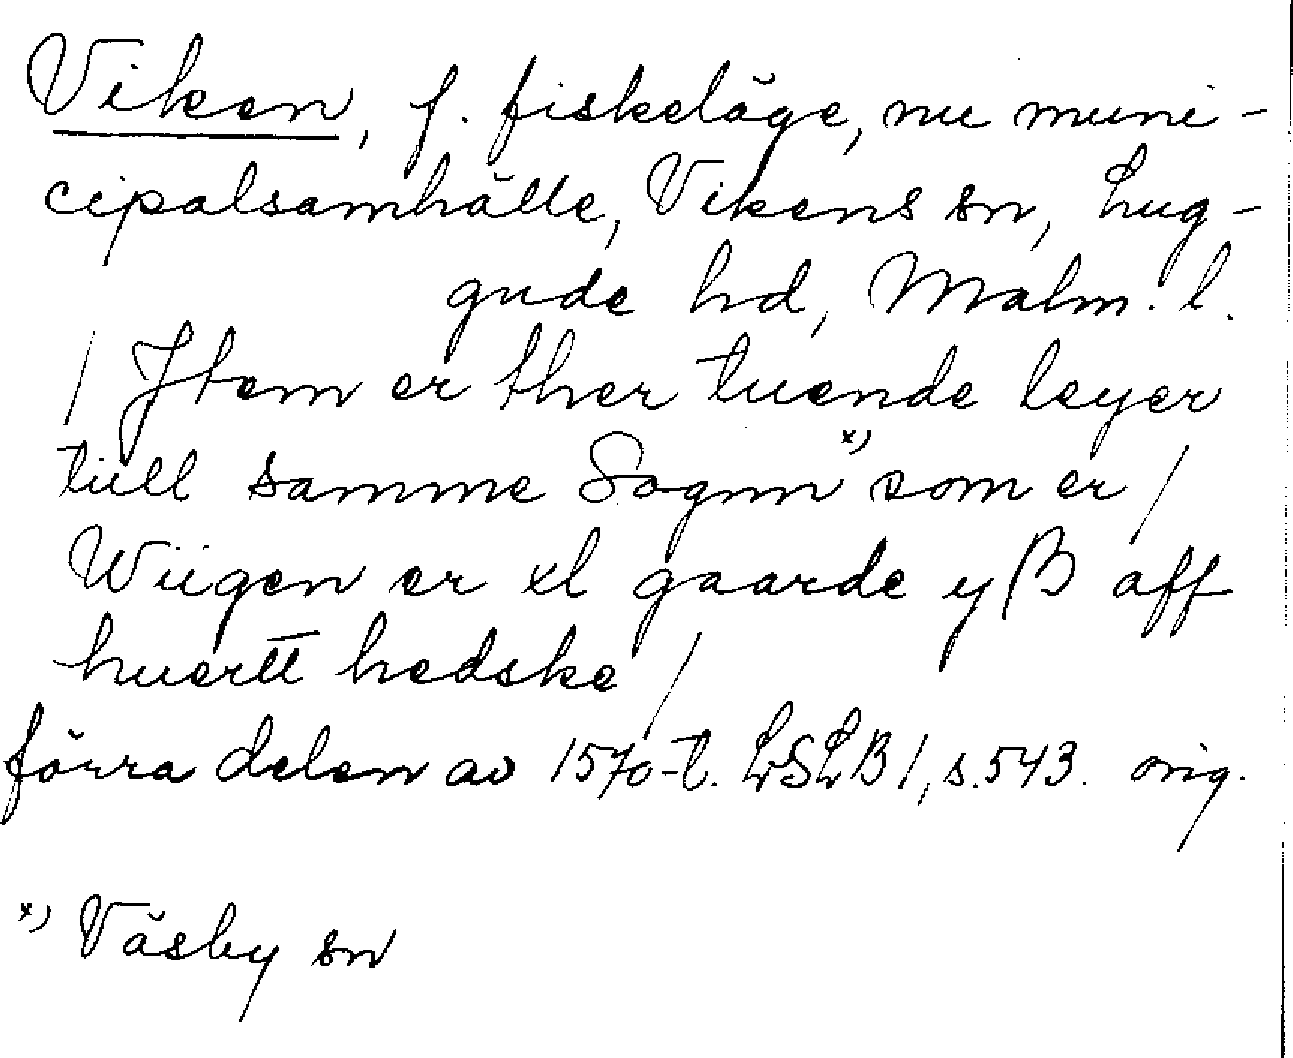 Viken, f. fiskeläge, nu muni-
cipalsamhälle, Vikens sn, Lug-
gude hd, Malm. l.
/ Jtem er ther tuende leyer
tiill samme Sognn x) som er /
Wiigen er xl gaarde y β aff
huertt hedske /
förra delen av 1570-t. LSLB 1, s. 543. orig.
x) Väsby sn